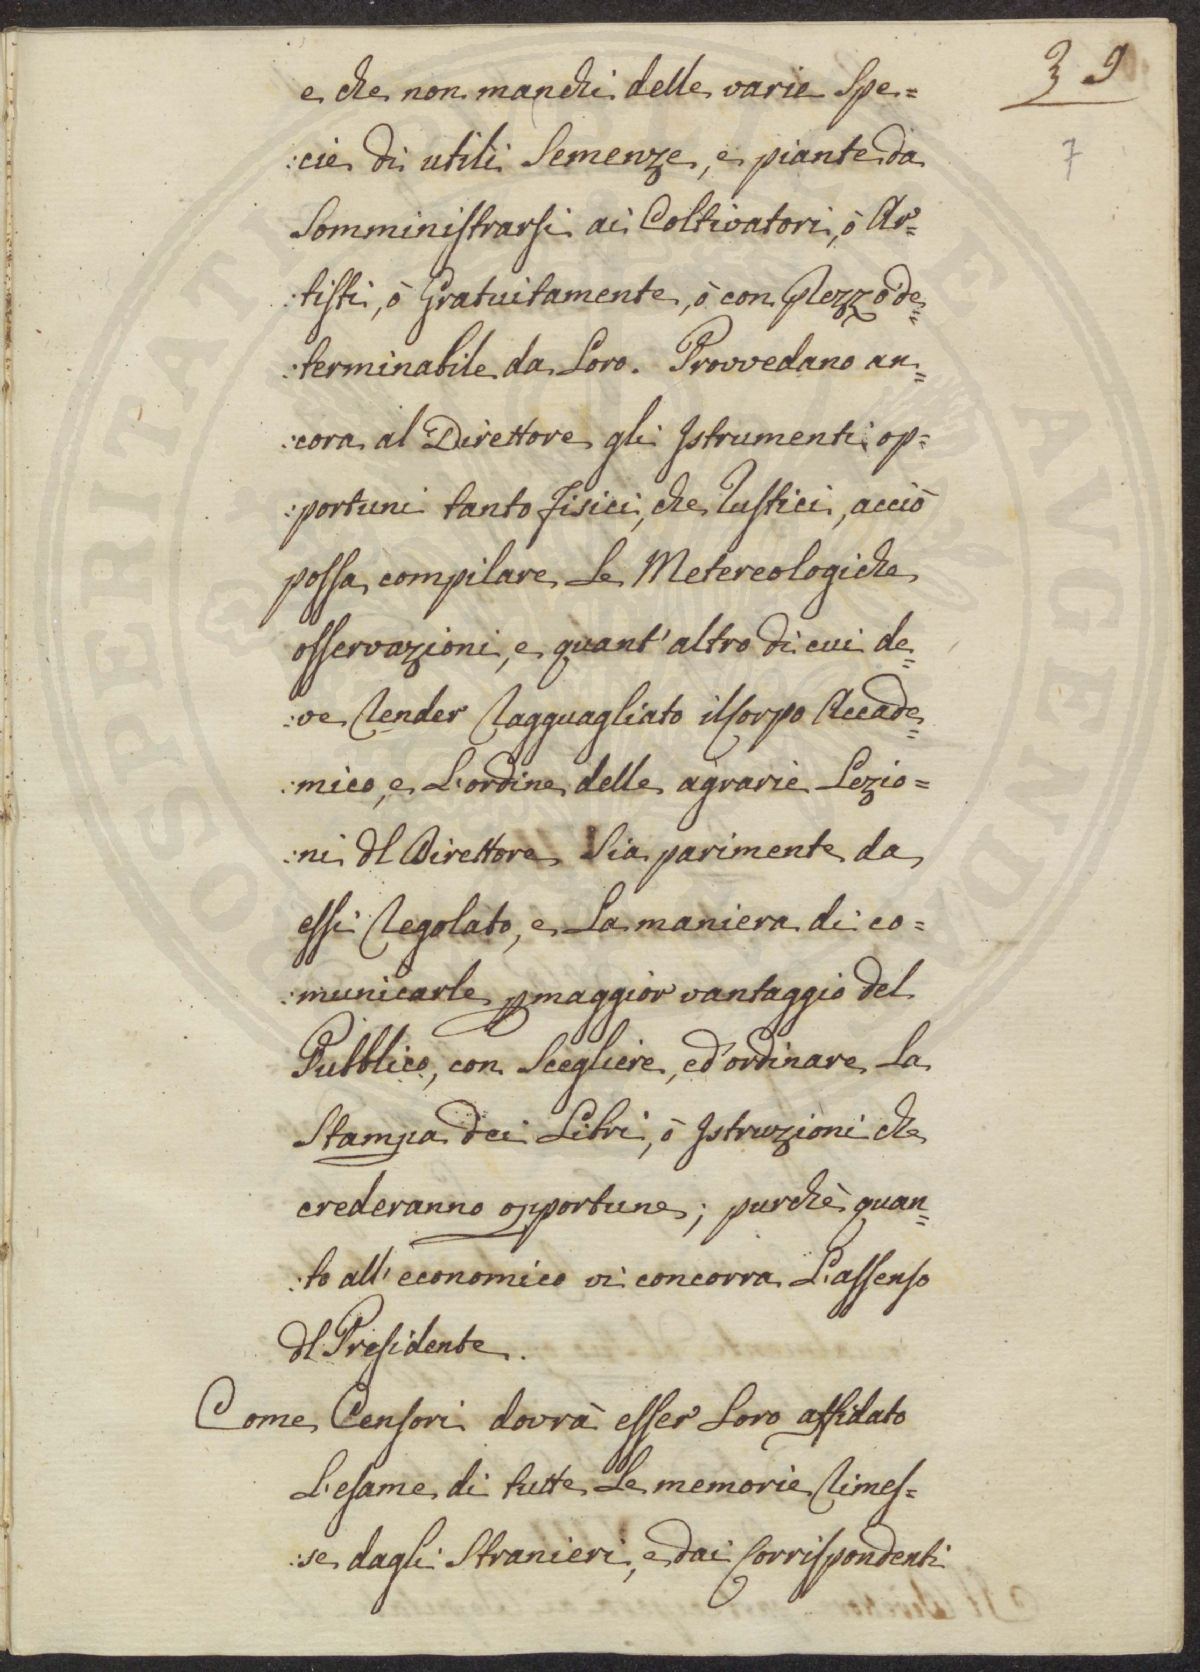 39
7
e che non manchi delle varie Spe=
:cie di utili Semenze, e piante da
Somministrarsi ai Coltivatori, ò Ar=
:tisti, ò Gratuitamente, ò con Prezzo de=
:terminabile da Loro. Provvedano an=
:cora al Direttore gli Istrumenti op=
:portuni tanto Fisici, che Rustici, acciò
possa compilare Le Metereologiche
osservazioni, e quant'altro di cui de=
:ve Render Ragguagliato il Corpo Accade=
:mico, e L'ordine delle agrarie Lezio=
:ni dl Direttore Sia parimente da
essi Regolato, e La maniera di co=
:municarle p maggior vantaggio del
Pubblico, con Scegliere, ed ordinare La
Stampa dei Libri, ò Istruzioni che
crederanno opportune; purchè quan=
:to all'economico vi concorra L'assenso
dl Presidente.
Come Censori dovrà esser Loro affidato
L'esame di tutte Le memorie Rimes=
:se dagli Stranieri, e dai Corrispondenti
PROSPERITATI PUBLICAE AUGENDAE